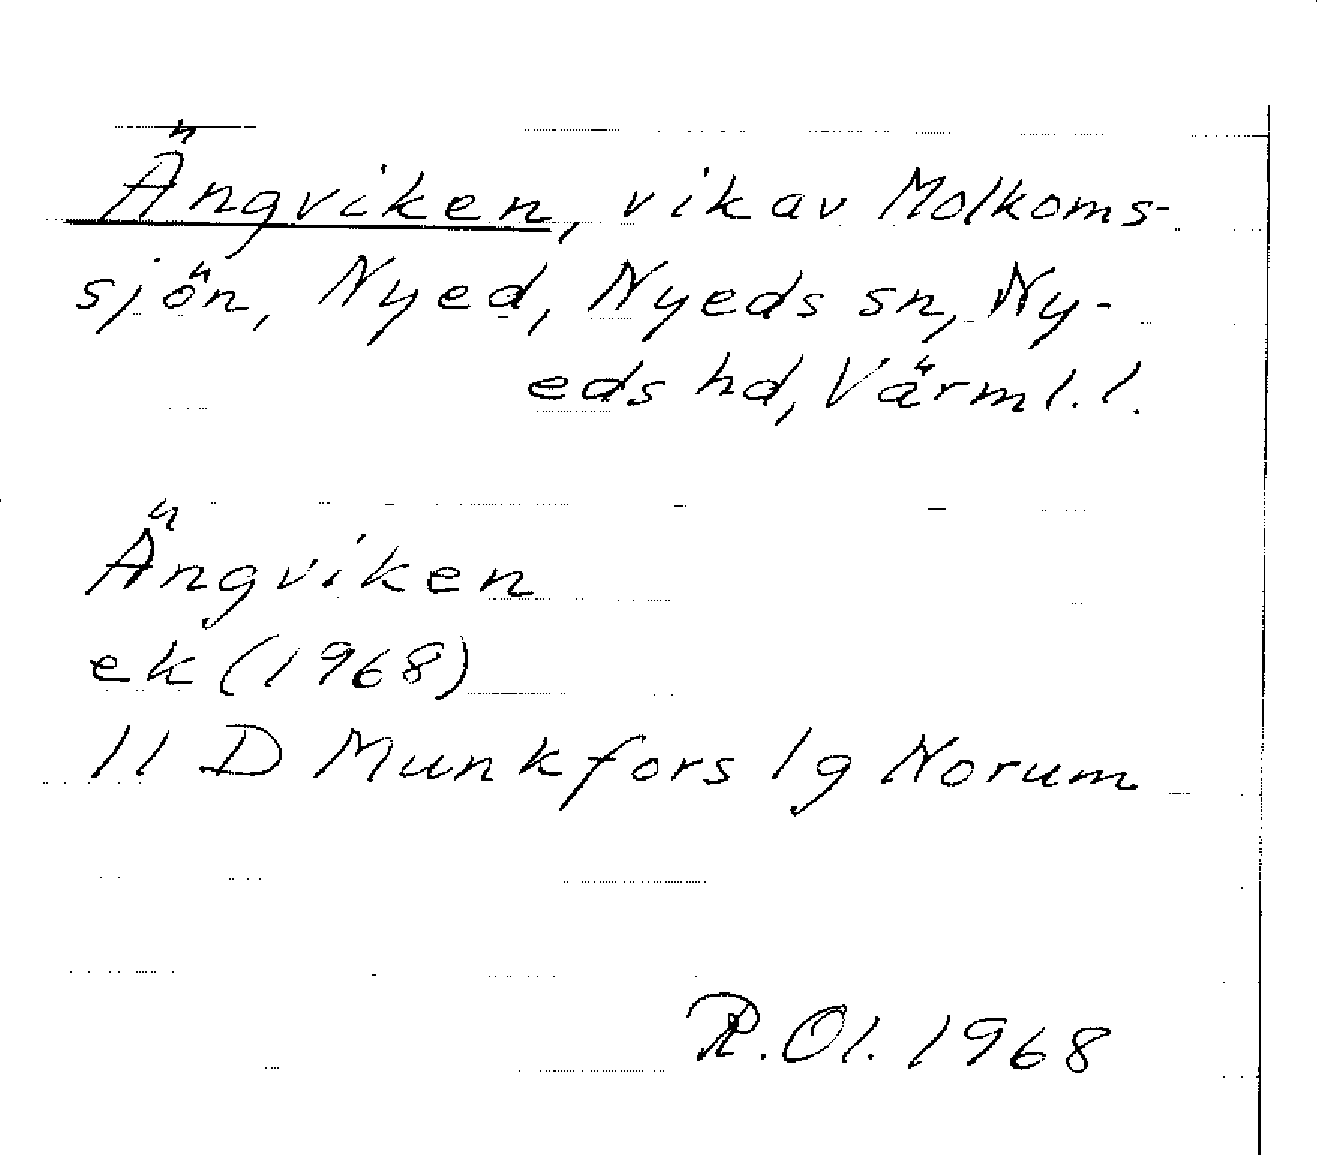 Ängviken, vik av Molkoms-
sjön, Nyed, Nyeds sn, Ny-
eds hd, Värml. l.
Ängviken
ek (1968)
11 D Munkfors lg Norum
R. Ol. 1968